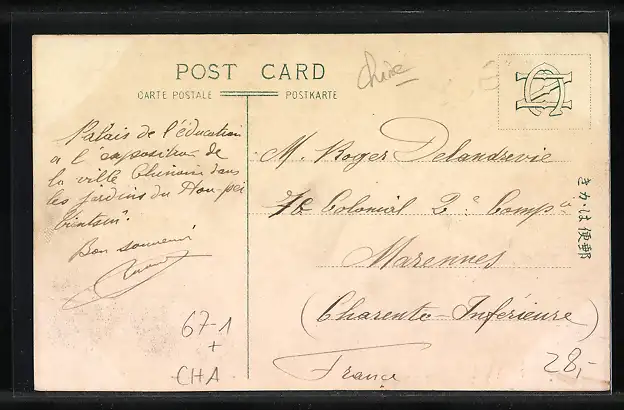 POST CARD
CARTE POSTALE POSTKARTE
Chine
Palais de l'éducation
a l'exposition de
la ville Chinoise dans
les jardins du Hou-pei
Tientsin.
Bon souvenir
M. Roger Delandrevie
7e Colonial 2e Compie
Marennes
(Charente-Inférieure)
France
きかは便郵
67-1
+
CHA
28,-